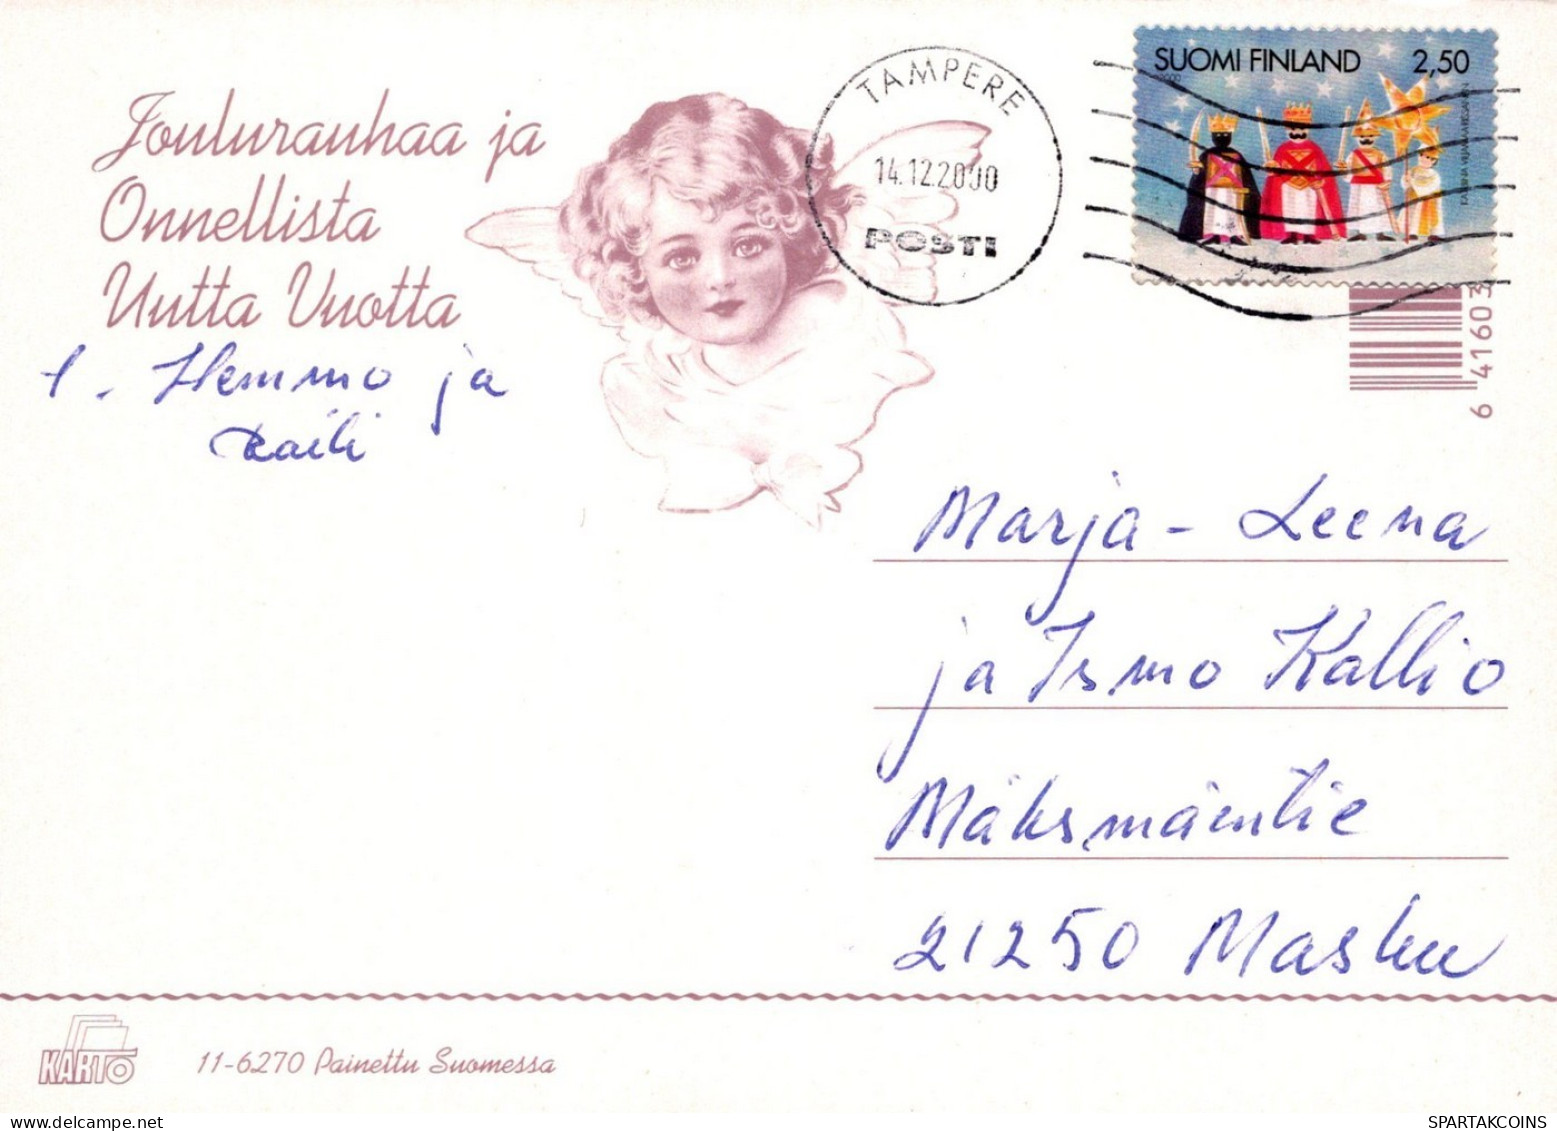 Joulurauhaa ja
Onnellista
Uutta Vuotta
t. Hemmo ja
Raili
TAMPERE
14.12.2000
POSTI
SUOMI FINLAND 2,50
2000
6 41603
Marja-Leena
ja Ismo Kallio
Mäksmäentie
21250 Masku
KARTO
11-6270 Painettu Suomessa
SPARTAKCOINS.COM